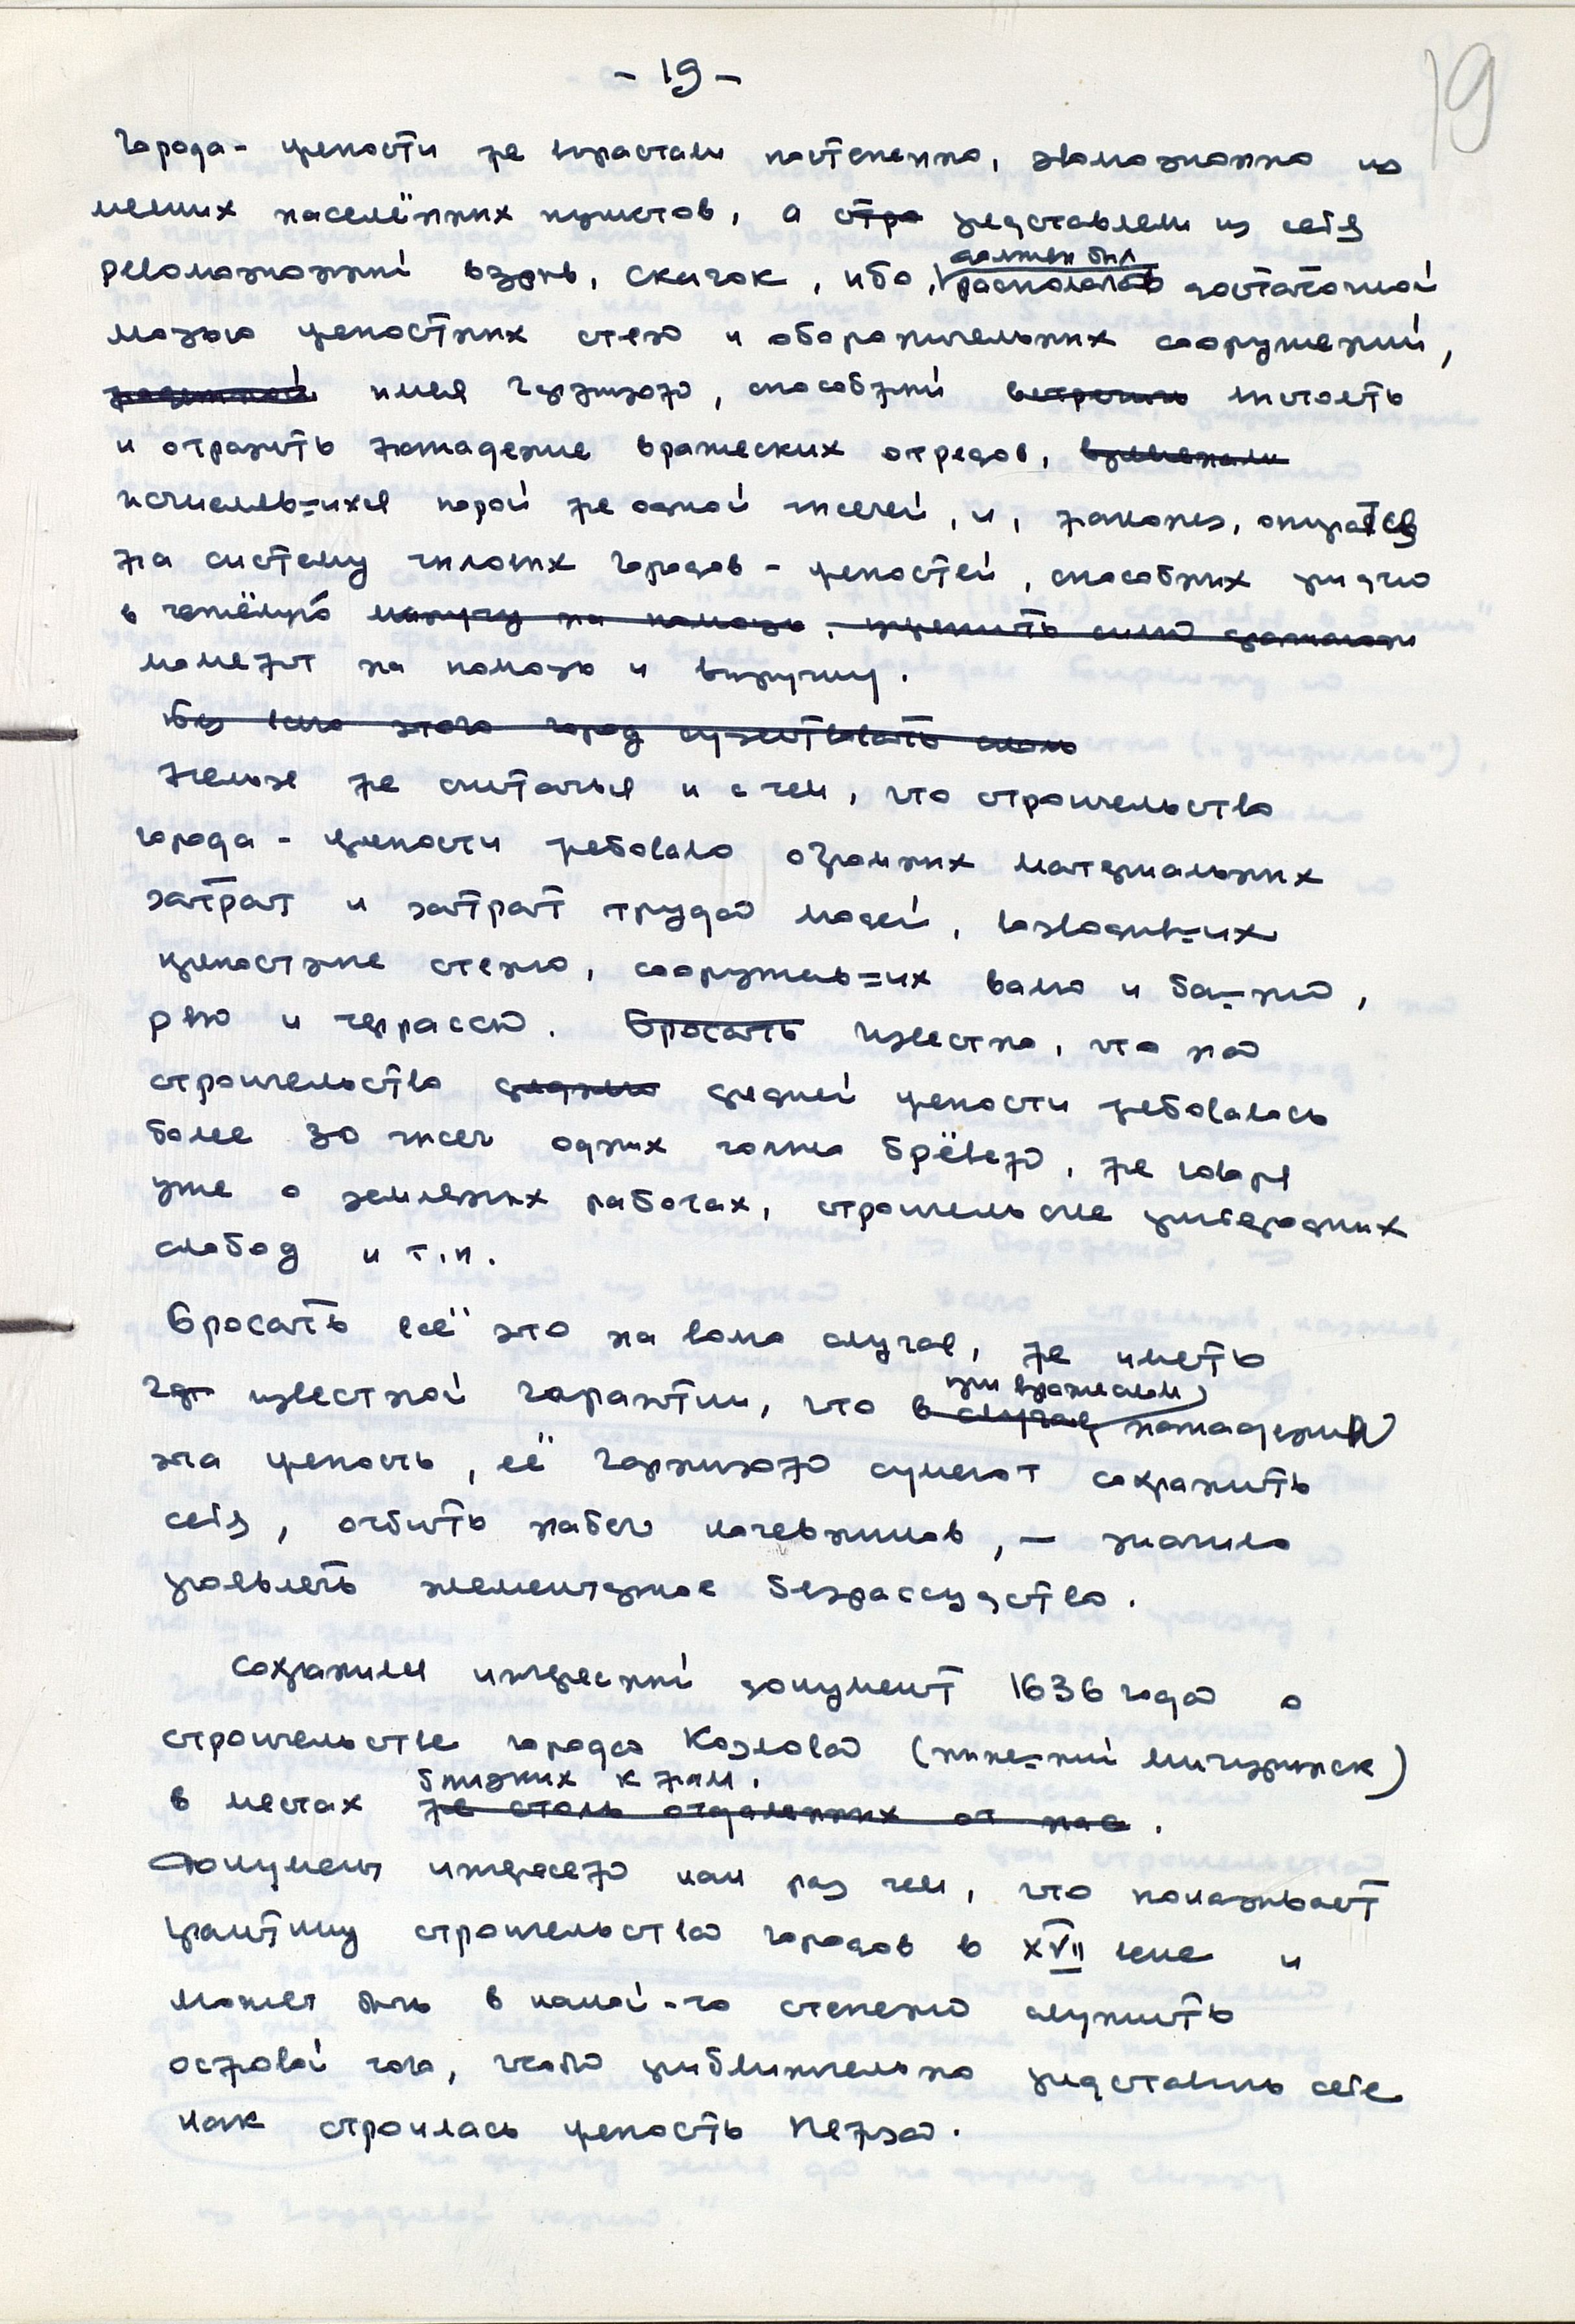 - 19 -
19
Города - крепости не вырастали постепенно, эволюционно из
мелких населённых пунктов, а стро представляли из себя
революционный взрыв, скачок, ибо,
должен был
располагать достаточной
мощью крепостных стен и оборонительных сооружений,
имея гарнизон, способный встречать выстоять
и отразить нападение вражеских отрядов,
исчислявшихся порой не одной тысячей, и, наконец, опираться
на систему тыловых городов - крепостей, способных придти
в тяжёлую выручку на помощь,
момент на помощь и выручку.
Без всего этого город существовать
Нельзя не считаться и с тем, что строительство
города - крепости требовало огромных материальных
затрат и затрат труда людей, возводивших
крепостные стены, сооружавших валы и башни,
рвы и террасы. Бросать Известно, что на
строительство средней крепости требовалось
более 30 тысяч одних только брёвен, не говоря
уже о земляных работах, строительстве пригородных
слобод и т.п.
Бросать всё это на волю случая, не иметь
известной гарантии, что в случае
при вражеском
нападении
эта крепость, её гарнизон сумеют сохранить
себя, отбить набеги кочевников, — значило
проявлять элементарное безрассудство.
Сохранился интересный документ 1636 года о
строительстве города Козлова (нынешний Мичуринск)
близких к нам.
в местах не столь отдаленных от нас.
Документ интересен как раз тем, что показывает
практику строительства городов в XVII веке и
может быть в какой-то степени служить
основой того, чтобы приблизительно представить себе
как строилась крепость Пенза.